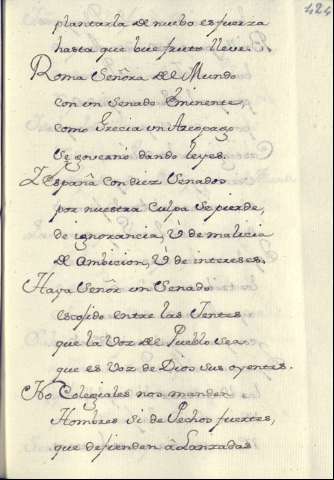 424
plantarla de nuebo es fuerza
hasta que bue fruto lleve.
Roma Señora del Mundo
con un Senado Eminente,
como Grecia un Areopago
se governò dando leyes.
Y España con diez Senados
por nuestra Culpa se pierde,
de ignorancia, ù de malicia
de Ambicion, ù de intereses.
Haya Señor un Senado
escojido entre las Jentes
que la Voz del Pueblo sea
que es Voz de Dios sus oyentes.
No Colegiales nos manden
Hombres si de Pechos fuertes,
que defienden à Lanzadas